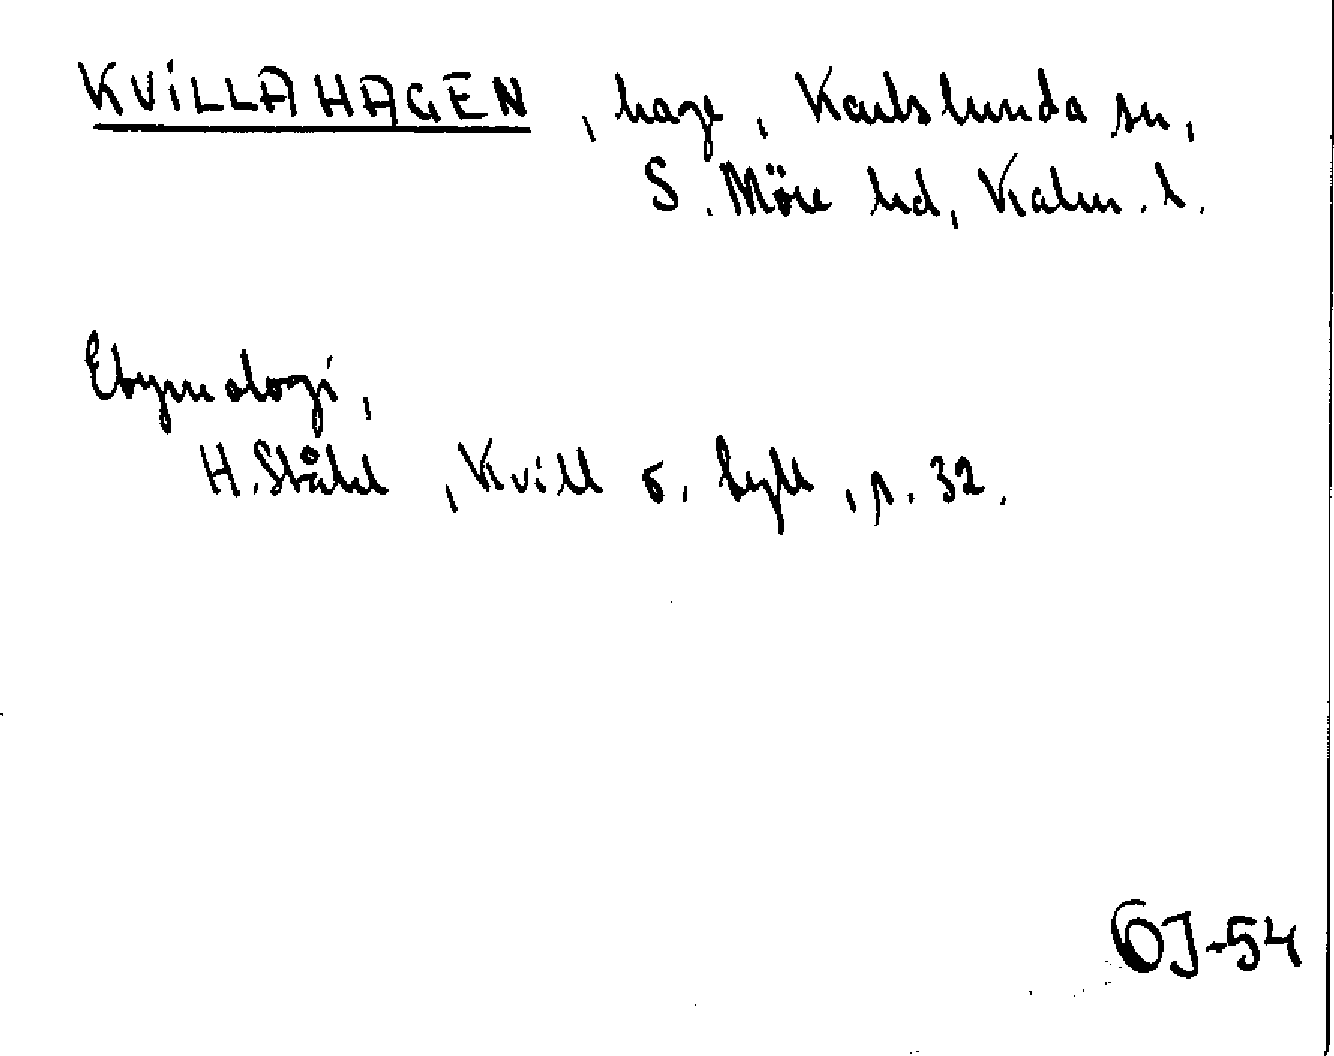 KVILLAHAGEN, hage, Karlslunda sn,
S. Möre hd, Kalm. l.
Etymologi,
H. Ståhl, Kvill o. tyll, p. 32.
OJ-54